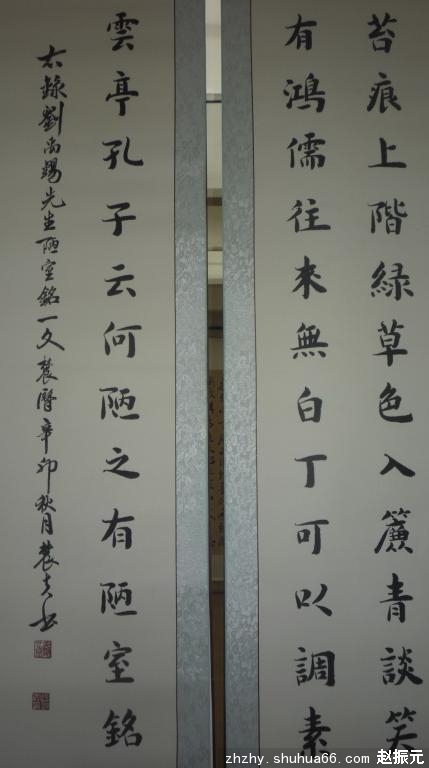 苔痕上階緑草色入簾青談笑
有鴻儒往来無白丁可以調素
雲亭孔子云何陋之有陋室銘
右錄劉禹錫先生陋室銘一文農曆辛卯秋月
zhzhy.shuhua66.com 赵振元